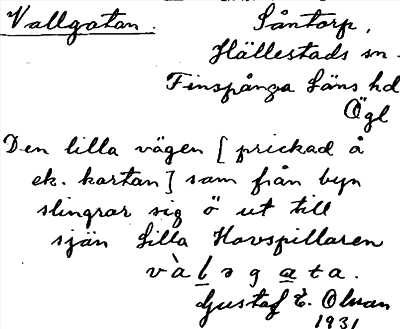 Vallgatan. Såntorp,
Hällestads sn.
Finspånga Läns hd
Ögl
Den lilla vägen [prickad å
ek. kartan] som från byn
slingrar sig ö ut till
sjän Lilla Havspillaren
và l ə g a t a.
Gustaf E. Olsson
1931